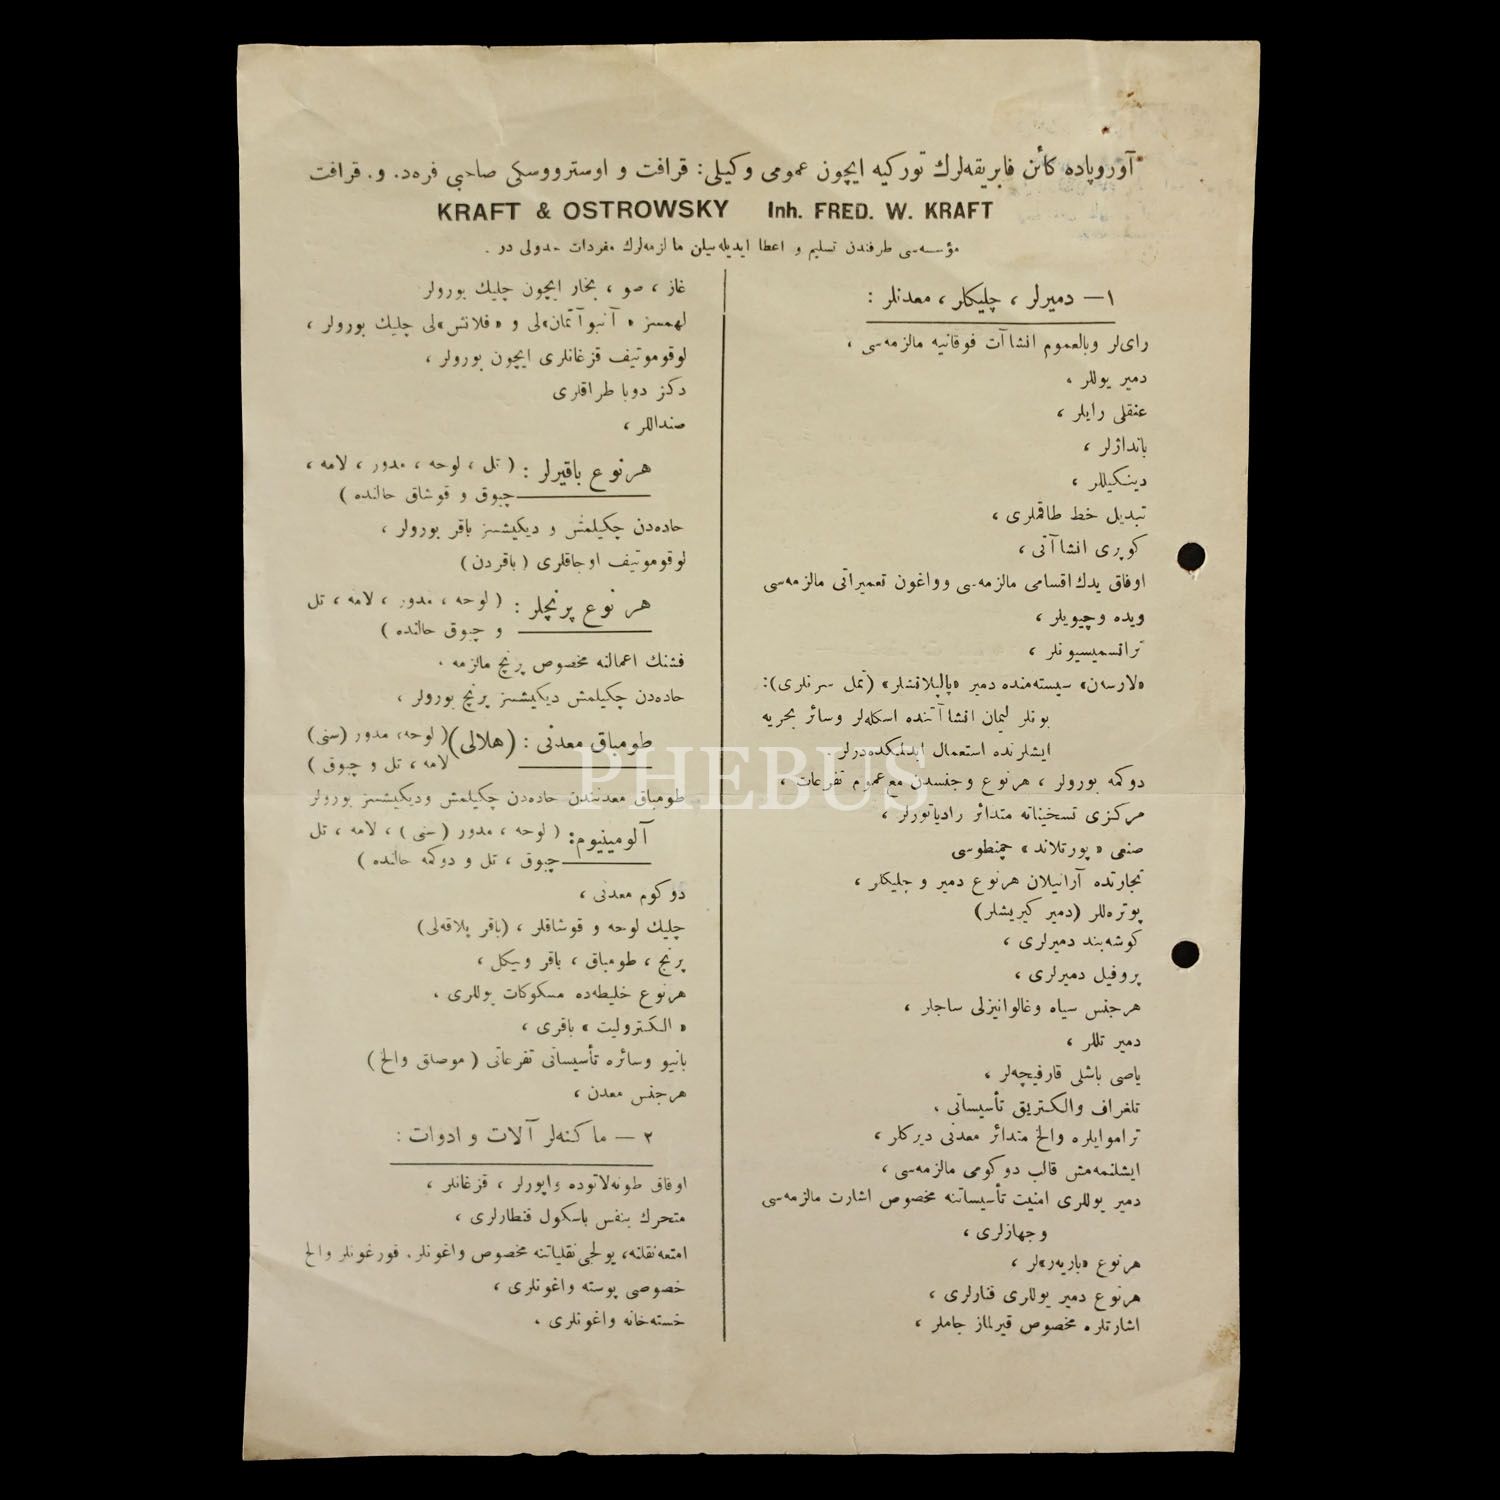 آوروپاده كائن فابريقه‌لرك توركيه ايچون عمومی وكيلی: قرافت و اوسترووسكی صاحبی فره‌د. و. قرافت
KRAFT & OSTROWSKY Inh. FRED. W. KRAFT
مؤسسه‌سی طرفندن تسليم و اعطا ايديله‌بيلن مالزمه‌لرك مفردات جدولی در .
١— دميرلر ، چليكلر ، معدنلر :
رای‌لر وبالعموم انشاآت فوقانيه مالزمه‌سی ،
دمير يوللر ،
عنقلی رايلر ،
بانداژلر ،
دينكيللر ،
تبديل خط طاقملری ،
كوپری انشاآتی ،
اوفاق يدك اقسامی مالزمه‌سی وواغون تعميراتی مالزمه‌سی
ويده وچيويلر ،
ترانسميسيونلر ،
«لارسه‌ن» سيسته‌منده دمير «پالپلانشلر» (تمل سرنلری):
بونلر ليمان انشاآتنده اسكله‌لر وسائر بحريه
ايشلرنده استعمال ايدلمكده‌درلر .
دوكمه بورولر ، هرنوع وجنسدن مع عموم تفرعات ،
مركزی تسخيناته متدائر رادياتورلر ،
صنعی «پورتلاند» چمنطوسی
تجارتده آرانيلان هرنوع دمير و چليكلر ،
پوتره‌للر (دمير كيريشلر)
كوشه‌بند دميرلری ،
پروفيل دميرلری ،
هرجنس سياه وغالوانيزلی ساجلر ،
دمير تللر ،
ياصی باشلی قارفيچه‌لر ،
تلغراف والكتريق تأسيساتی ،
تراموايلره والخ متدائر معدنی ديركلر ،
ايشلنمه‌مش قالب دوكومی مالزمه‌سی ،
دمير يوللری امنيت تأسيساتنه مخصوص اشارت مالزمه‌سی
وجهازلری ،
هرنوع «باريه‌ر»لر ،
هرنوع دمير يوللری فنارلری ،
اشارتلره مخصوص قيرلماز جاملر ،
غاز ، صو ، بخار ايچون چليك بورولر
لهمسز « آنبوآتمان»لی و «فلانش»لی چليك بورولر ،
لوقوموتيف قزغانلری ايچون بورولر ،
دكز دوبا طراقلری
صنداللر ،
هرنوع باقيرلر : ( تل ، لوحه ، مدور ، لامه ،
چبوق و قوشاق حالنده )
حاده‌دن چكيلمش و ديكيشسز باقر بورولر ،
لوقوموتيف اوجاقلری (باقردن)
هر نوع پرنچلر : ( لوحه ، مدور ، لامه ، تل
و چبوق حالنده )
فشنك اعمالنه مخصوص پرنچ مالزمه .
حاده‌دن چكيلمش ديكيشسز پرنچ بورولر ،
طومباق معدنی : (هلالی) ( لوحه، مدور (سنی)
لامه ، تل و چبوق )
طومباق معدنندن حاده‌دن چكيلمش وديكيشسز بورولر
آلومينيوم: ( لوحه ، مدور (سنی) ، لامه ، تل
چبوق ، تل و دوكمه حالنده )
دوكوم معدنی ،
چليك لوحه و قوشاقلر ، (باقر پلاقه‌لی)
پرنچ ، طومباق ، باقر ونيكل ،
هرنوع خليطه‌ده مسكوكات پوللری .
« الكتروليت » باقری ،
بانيو وسائره تأسيساتی تفرعاتی ( موصلق والخ )
هرجنس معدن ،
٢ — ماكنه‌لر آلات و ادوات :
اوفاق طونه‌لاتوده واپورلر ، قزغانلر ،
متحرك بنفس باسكول قنطارلری ،
امتعه نقلنه، يولجی نقلياتنه مخصوص واغونلر، فورغونلر والخ
خصوصی پوسته واغونلری ،
خسته‌خانه واغونلری .